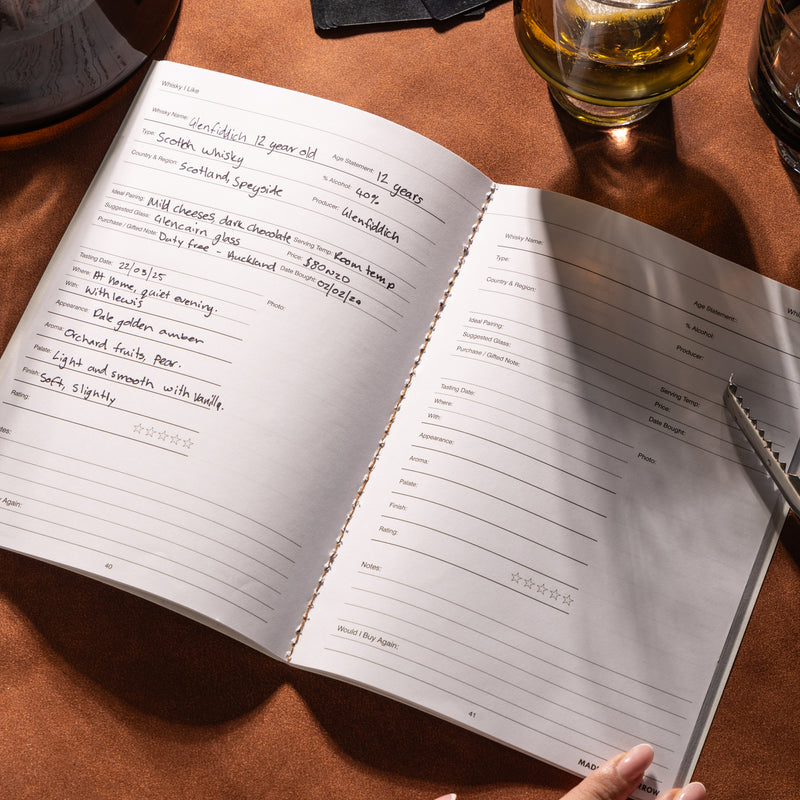 Whisky I Like
Whisky Name: Glenfiddich 12 year old
Age Statement: 12 years
Type: Scotch Whisky
% Alcohol: 40%
Country & Region: Scotland, Speyside
Producer: Glenfiddich
Ideal Pairing: Mild cheeses, dark chocolate
Serving Temp: Room temp
Suggested Glass: Glencairn glass
Price: $80NZD
Purchase / Gifted Note: Duty free - Auckland
Date Bought: 02/02/20
Tasting Date: 22/03/25
Where: At home, quiet evening.
Photo:
With: With lewis
Appearance: Pale golden amber
Aroma: Orchard fruits, pear.
Palate: Light and smooth with vanilla.
Finish: Soft, slightly
Rating:
Again:
40
Whisky Name:
Age Statement:
Type:
% Alcohol:
Country & Region:
Producer:
Ideal Pairing:
Serving Temp:
Suggested Glass:
Price:
Purchase / Gifted Note:
Date Bought:
Tasting Date:
Where:
Photo:
With:
Appearance:
Aroma:
Palate:
Finish:
Rating:
Notes:
Would I Buy Again:
41